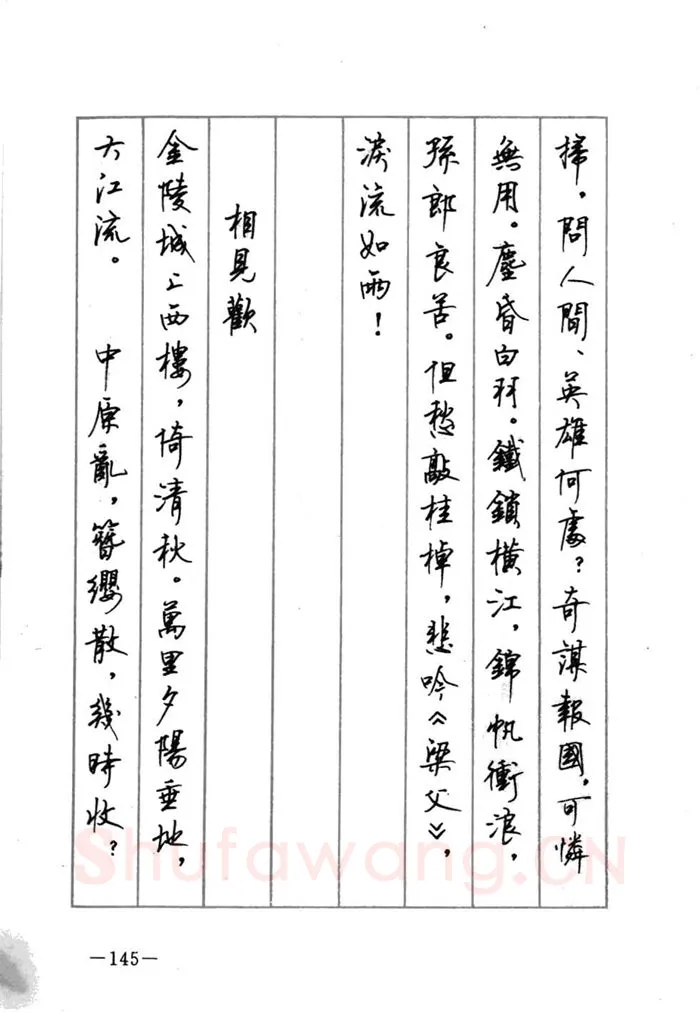 掃，問人間、英雄何處？奇謀報國，可憐
無用。塵昏白羽。鐵鎖橫江，錦帆衝浪，
孫郎良苦。但愁敲桂棹，悲吟《梁父》，
淚流如雨！
相見歡
金陵城上西樓，倚清秋。萬里夕陽垂地，
大江流。 中原亂，簪纓散，幾時收？
Shufawang.CN
—145—